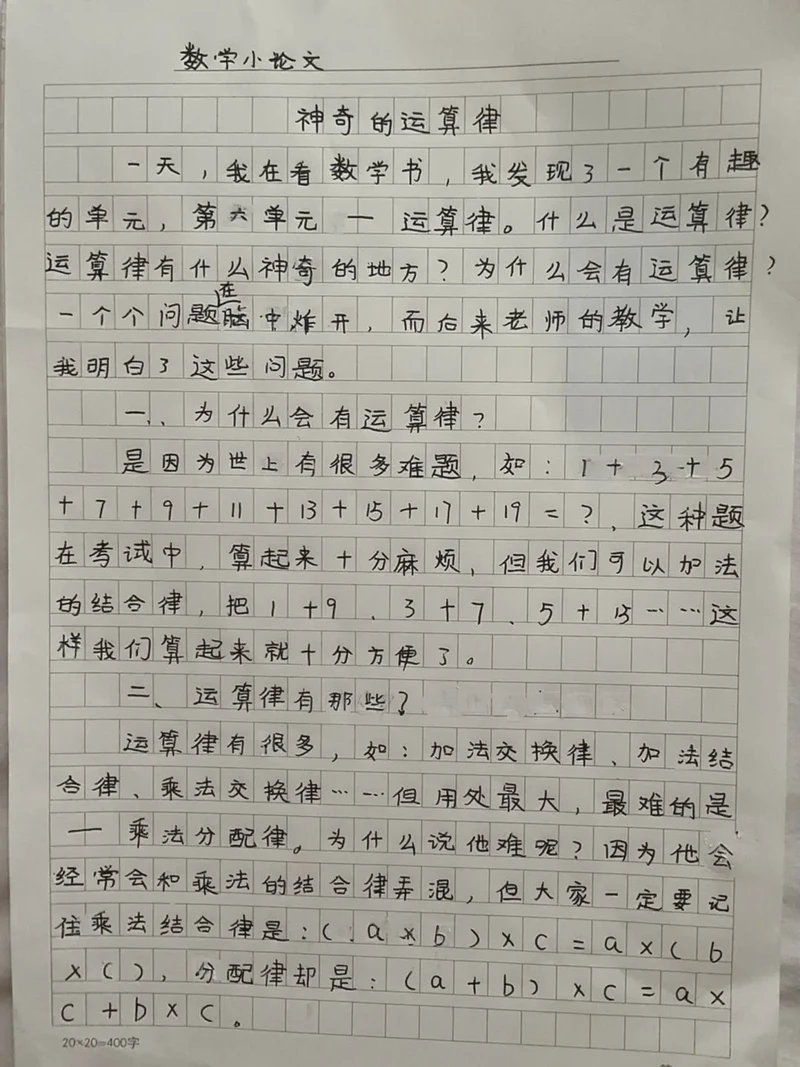 数学小论文
神奇的运算律
一天，我在看数学书，我发现了一个有趣
的单元，第六单元—运算律。什么是运算律？
运算律有什么神奇的地方？为什么会有运算律？
一个个问题在脑中炸开，而后来老师的教学，让
我明白了这些问题。
一、为什么会有运算律？
是因为世上有很多难题，如：1+3+5
+7+9+11+13+15+17+19=？，这种题
在考试中，算起来十分麻烦，但我们可以加法
的结合律，把1+9、3+7、5+15……这
样我们算起来就十分方便了。
二、运算律有那些？
运算律有很多，如：加法交换律、加法结
合律、乘法交换律……但用处最大，最难的是
—乘法分配律。为什么说他难呢？因为他会
经常会和乘法的结合律弄混，但大家一定要记
住乘法结合律是：（a×b）×c=a×（b
×c），分配律却是：（a+b）×c=a×
c+b×c。
20×20=400字